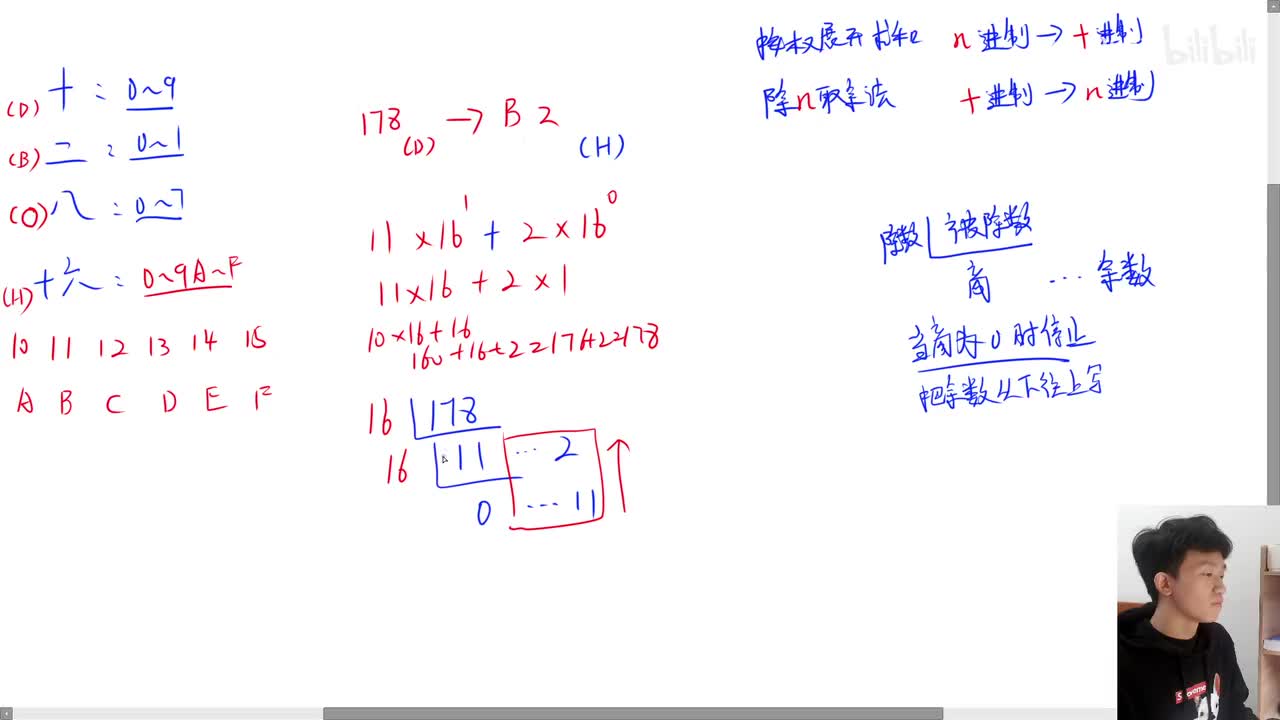 (D) 十 : 0~9
(B) 二 : 0~1
(O) 八 : 0~7
(H) 十六 : 0~9A~F
10 11 12 13 14 15
A B C D E F
178(D) → B 2 (H)
11 × 16¹ + 2 × 16⁰
11×16 + 2×1
10×16+16
160+16+2=176+2=178
16 178
16 11 … 2
0 … 11
按权展开求和 n进制→十进制
除n取余法 十进制→n进制
除数 被除数
商 … 余数
当商为0时停止
把余数从下往上写
bilibili
Supreme